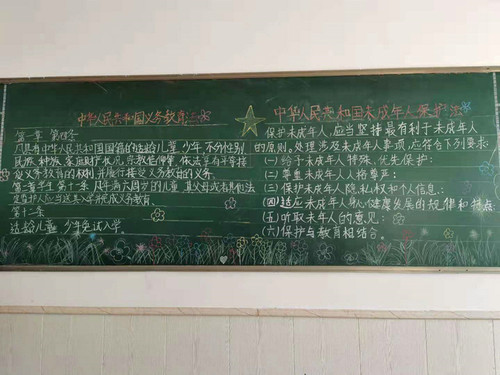 中华人民共和国义务教育法
第一章 第四条
凡具有中华人民共和国国籍的适龄儿童、少年,不分性别、
民族、种族、家庭财产状况、宗教信仰等,依法享有平等接
受义务教育的权利,并履行接受义务教育的义务。
第二章学生 第十一条 凡年满六周岁的儿童,其父母或者其他法
定监护人应当送其入学完成义务教育。
第十二条
适龄儿童、少年免试入学。
中华人民共和国未成年人保护法
保护未成年人,应当坚持最有利于未成年人
的原则。处理涉及未成年人事项,应符合下列要求:
(一)给予未成年人特殊、优先保护;
(二)尊重未成年人人格尊严;
(三)保护未成年人隐私权和个人信息;
(四)适应未成年人身心健康发展的规律和特点;
(五)听取未成年人的意见;
(六)保护与教育相结合。